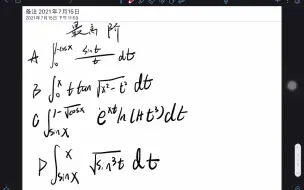 备注 2021年7月15日
2021年7月15日 下午11:09
最高阶
A ∫₀^{1-cosx} (sint / t) dt
B ∫₀^x t tan√(x²-t²) dt
C ∫_{sinx}^{1-√cosx} e^{xt} ln(1+t³) dt
D ∫_{sinx}^x √(sin³t) dt